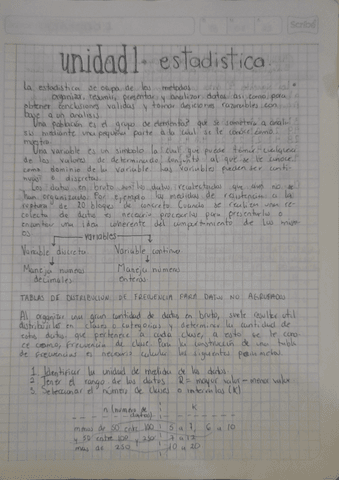 Scribe
unidad 1 - estadistica.
La estadistica se ocupa de los metodos
organizar, resumir, presentar y analizar datos asi como para
obtener conclusiones validas y tomar desiciones razonables con
base a un analisis
Una población es el grupo de elementos que se someten a anali
sis mediante una pequeña parte a la cual se le conoce como
muestra.
Una variable es un simbolo la cual que puede tomar cualquiera
de los valores de determinado conjunto al que se le conoce
como dominio de la variable las variables pueden ser conti
nuas o discretas.
Los datos en bruto son los datos recolectados que aun no se
han organizado. Por ejemplo las medidas de resistencia a la
ruptura de 20 bloques de concreto. Cuando se realizan una re
colecta de datos es necesario procesarlos para presentarlos o
encontrar una idea coherente del comportamiento de los mism
os
variables
Variable discreta Variable continua
Maneja numeros Maneja números
decimales enteros
TABLAS DE DISTRIBUCION DE FRECUENCIA PARA DATOS NO AGRUPADOS
Al organizar una gran cantidad de datos en bruto, suele resultar util
distribuirlos en clases o categorias y determinar la cantidad de
estos datos que pertenece a cada clase, a esto se le cono
ce como frecuencia de clase. Para la construcción de una tabla
de frecuencias es necesario calcular los siguientes parametros
1 Identificar la unidad de medida de los datos
2 Tener el rango de los datos R= mayor valor - menor valor
3 Determinar el número de clases o intervalos (K)
n (número de datos) K
menos de 50 entre 100 5 a 7, 6 a 10
y 50 entre 100 y 250 7 a 12
mas de 250 10 a 20